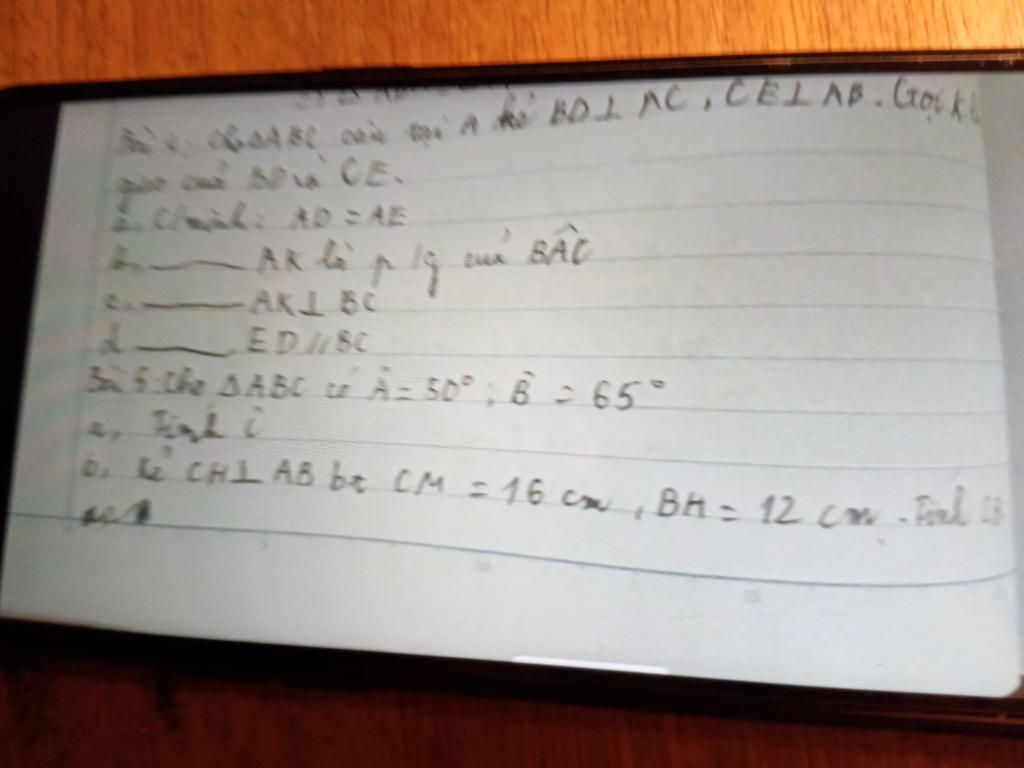 Bài 4: Cho ΔABC cân tại A kẻ BD⊥ AC, CE⊥ AB. Gọi K là
giao của BD và CE.
a. C/minh: AD = AE
b. —— AK là p/g của BÂC
c. —— AK⊥ BC
d —— ED // BC
Bài 5: Cho ΔABC có Â = 50°; B̂ = 65°
a, Tính Ĉ
b, Kẻ CH⊥ AB bt CM = 16 cm, BH = 12 cm. Tính CB